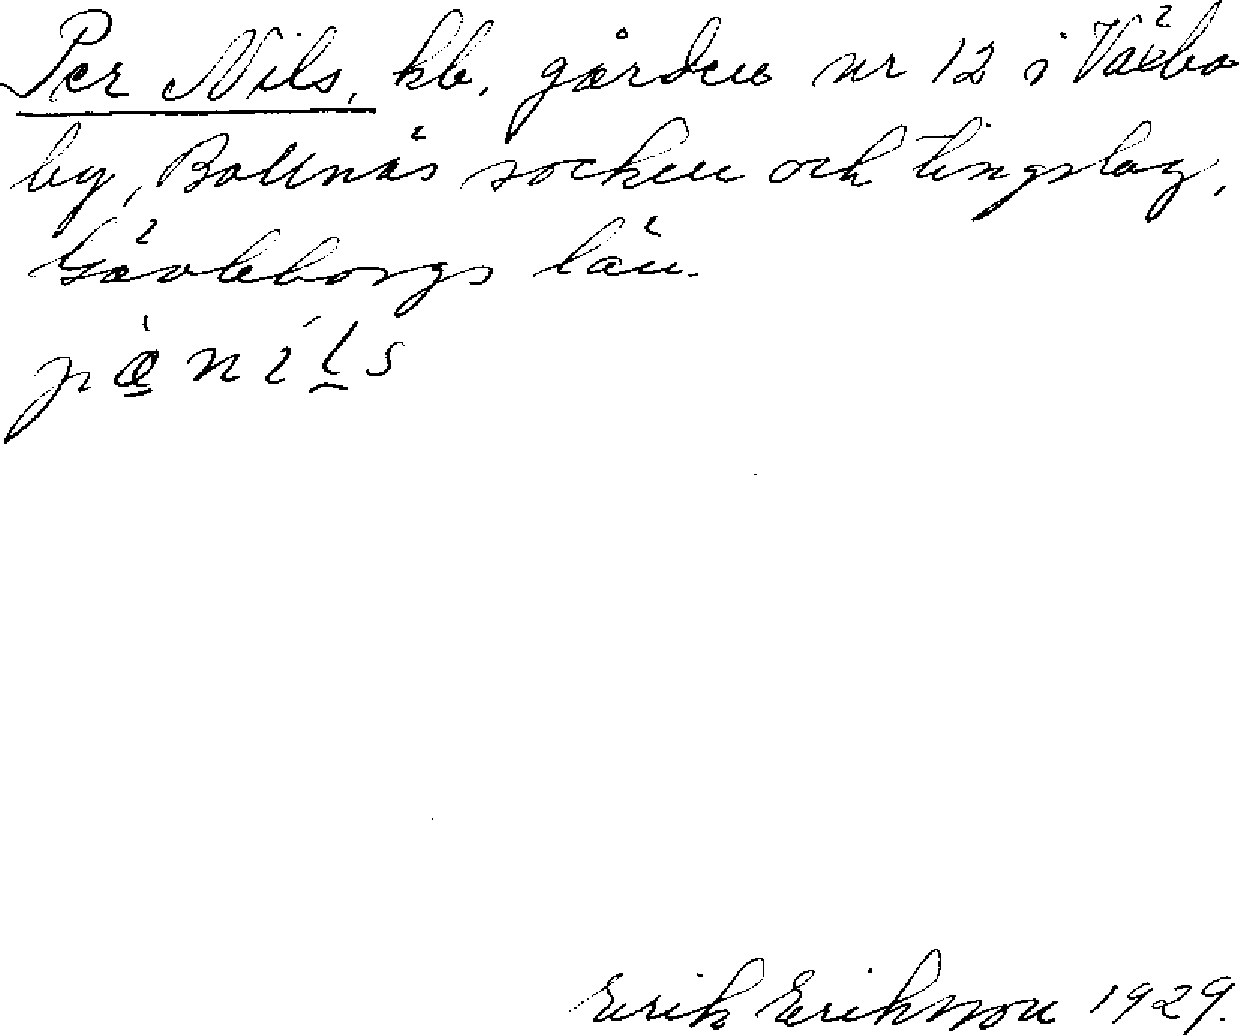 Per Nils, kb. gården nr 12 i Växbo
by, Bollnäs socken och tingslag,
Gävleborgs län.
pæ̀nils
Erik Eriksson 1929.